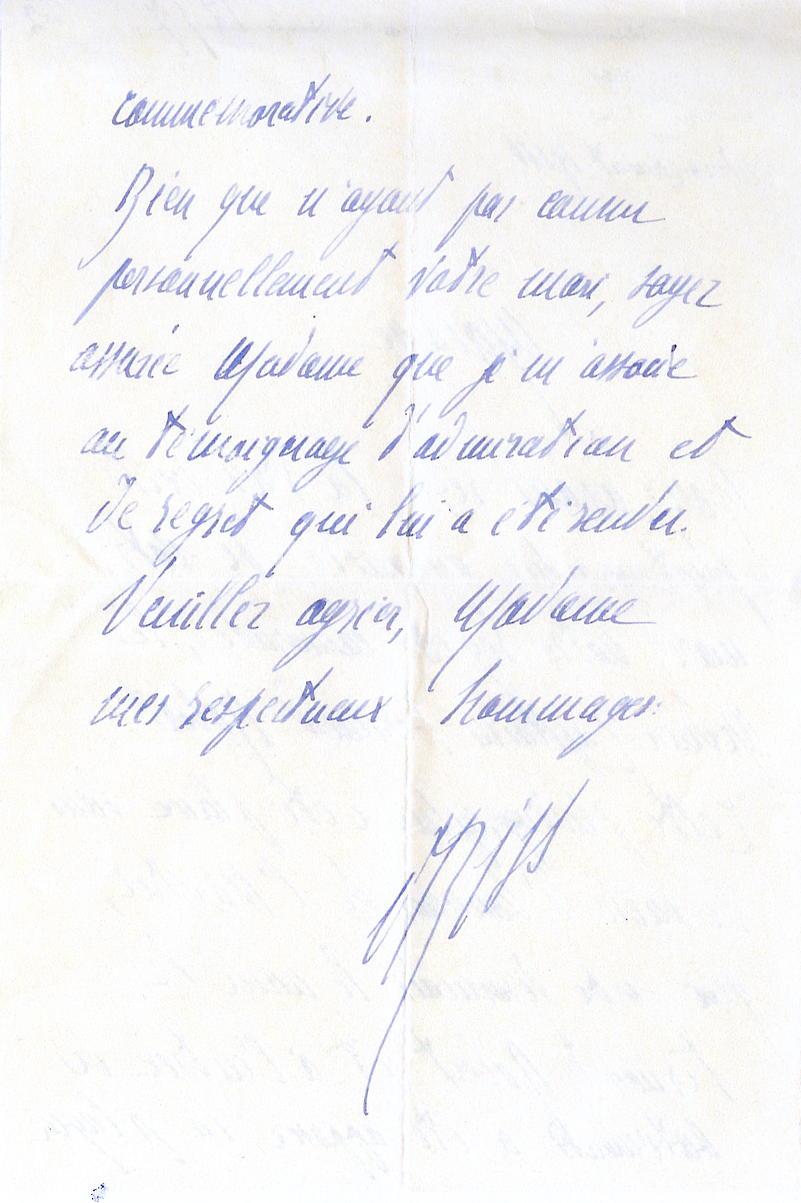 commemorative.
Bien que n'ayant pas connu
personnellement votre mari, soyez
assurée Madame que je m'associe
au témoignage d'admiration et
de regret qui lui a été rendu.
Veuillez agréer, Madame
mes respectueux hommages.